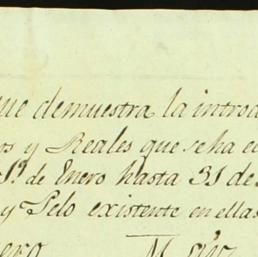 que demuestra la introd
os y Reales que se ha e
1º de Enero hasta 31 de
y Pelo existente en ellas
ero